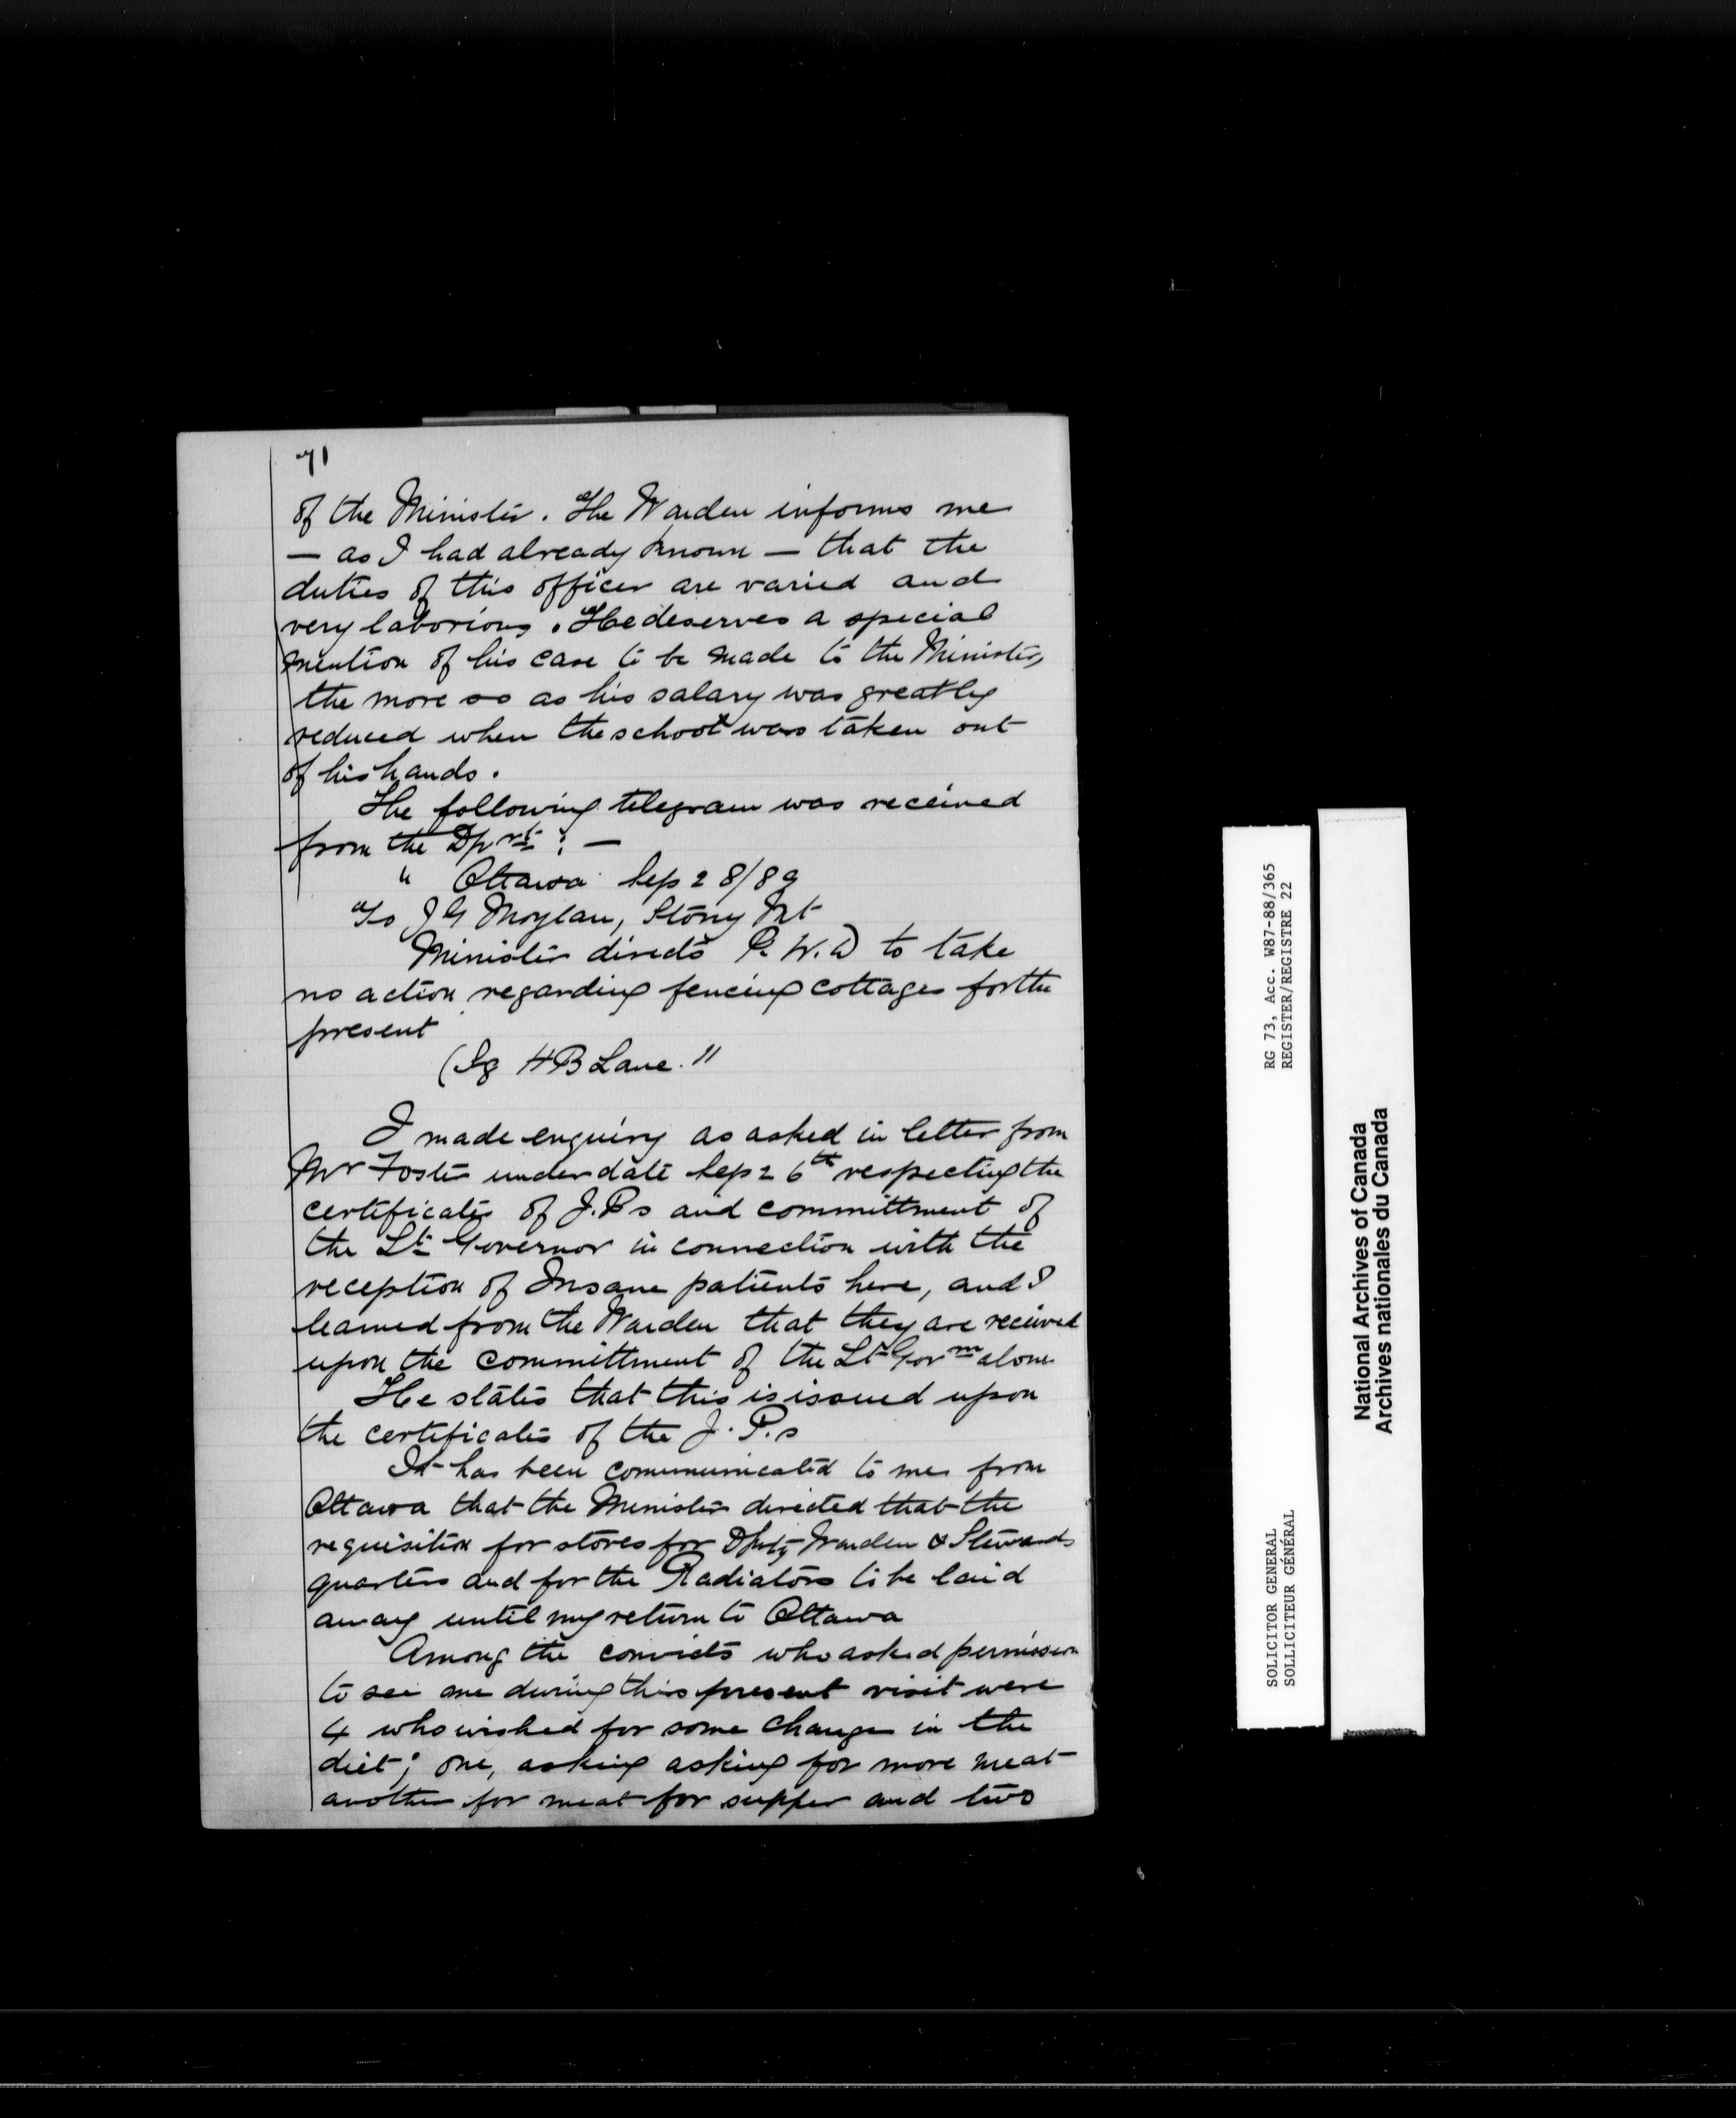 71
of the Minister. The Warden informs me
— as I had already known — that the
duties of this officer are varied and
very laborious. He deserves a special
mention of his case to be made to the Minister,
the more so as his salary was greatly
reduced when the school was taken out
of his hands.
The following telegram was received
from the Dprt : —
" Ottawa Sep 28/89
To J G Moylan, Stony Mt
Minister directs P. W. D to take
no action regarding fencing cottages for the
present
(Sg H B Lane."
I made enquiry as asked in letter from
Mr Foster under date Sep 26th respecting the
certificates of J.P.s and committment of
the Lt Governor in connection with the
reception of Insane patients here, and I
learned from the Warden that they are received
upon the committment of the Lt Gov alone
He states that this is issued upon
the certificates of the J. P.s
It has been communicated to me from
Ottawa that the Minister directed that the
requisition for stoves for Dputy Warden & Stewards
quarters and for the Radiators to be laid
away until my return to Ottawa
Among the convicts who asked permission
to see me during this present visit were
4 who wished for some change in the
diet; one, asking asking for more meat
another for meat for supper and two
RG 73, Acc. W87-88/365
REGISTER/REGISTRE 22
SOLICITOR GENERAL
SOLLICITEUR GÉNÉRAL
National Archives of Canada
Archives nationales du Canada